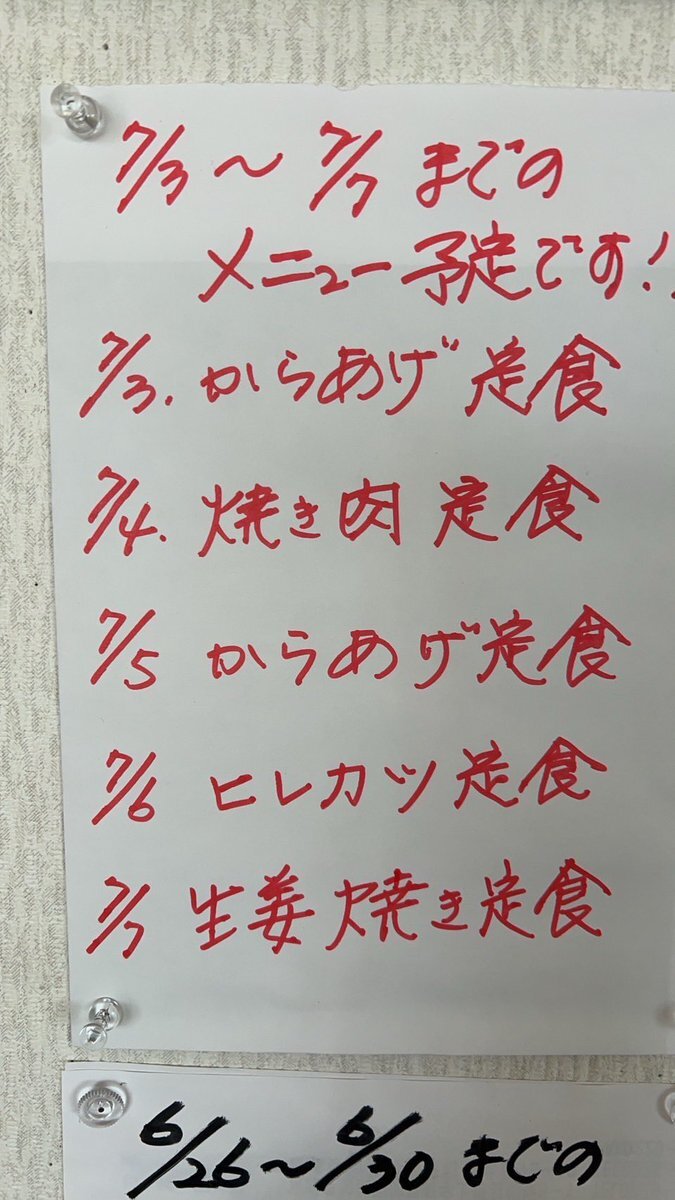 7/3〜7/7までの
メニュー予定です!
7/3.からあげ定食
7/4.焼き肉定食
7/5 からあげ定食
7/6 ヒレカツ定食
7/7 生姜焼き定食
6/26〜6/30までの